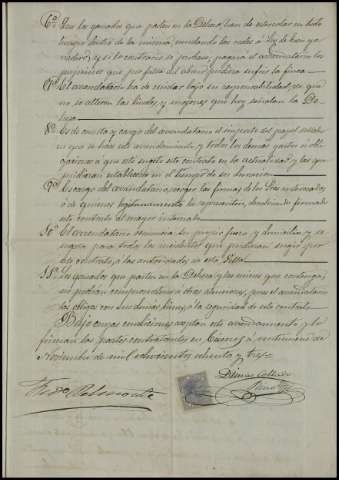 6ª Que los ganados que pasten en la Dehesa, han de estercolar en todo
tiempo dentro de la misma, mudando las redes á ley de buen ga-
nadero; y si lo contrario se probase, pagará el arrendatario los
perjuicios que por falta del abono pudiera sufrir la finca.
7ª El arrendatario ha de cuidar bajo su responsabilidad, de que
no se alteren las lindes, y mojones que hoy señalan la De-
hesa
8ª Es de cuenta y cargo del arrendatario el importe del papel sellado
en que se hace este arrendamiento y todos los demas gastos ú obli-
gaciones á que esté sugeto este contrato en la actualidad y las que
pudieran establecer en el tiempo de su duracion
9ª Es cargo del arrendatario, recoger las firmas de los Sres. interesados
ó de quienes legitimamente los representen, dandose firmado
este contrato
10ª El arrendatario renuncia su propio fuero y domicilio y se
para todos los incidentes que pudieran surgir por
este contrato, á las autoridades de esta
11ª Los ganados que pasten en la Dehesa y los mismos que contenga,
no podrán á otras atenciones, pues el arrendatario
los obliga con sus demás bienes á la seguridad de este contrato.
Bajo cuyas condiciones aceptan este arrendamiento y lo
firman las partes contratantes en Cáceres á veintiuno de
Noviembre de mil ochocientos ochenta y tres.